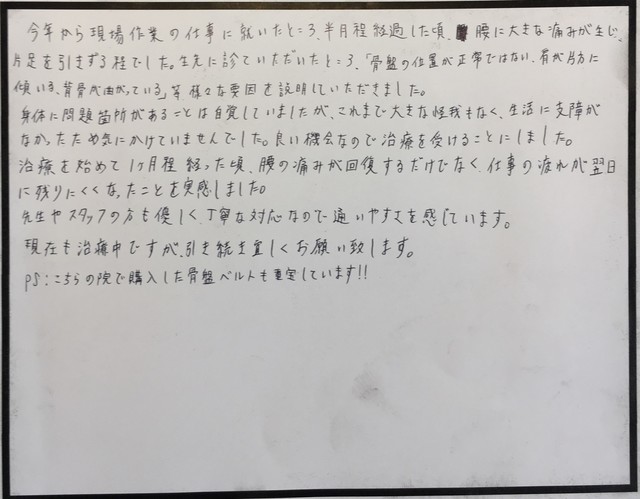 今年から現場作業の仕事に就いたところ、半月程経過した頃、腰に大きな痛みが生じ、
片足を引きずる程でした。先生に診ていただいたところ、「骨盤の位置が正常ではない、肩が片方に
傾いる、背骨が曲がっている」等様々な要因を説明していただきました。
身体に問題箇所があることは自覚していましたが、これまで大きな怪我もなく、生活に支障が
なかったため気にかけていませんでした。良い機会なので治療を受けることにしました。
治療を始めて1ヶ月程経った頃、腰の痛みが回復するだけでなく、仕事の疲れが翌日
に残りにくくなったことを実感しました。
先生やスタッフの方も優しく、丁寧な対応なので通いやすさを感じています。
現在も治療中ですが、引き続き宜しくお願い致します。
PS:こちらの院で購入した骨盤ベルトも重宝しています!!